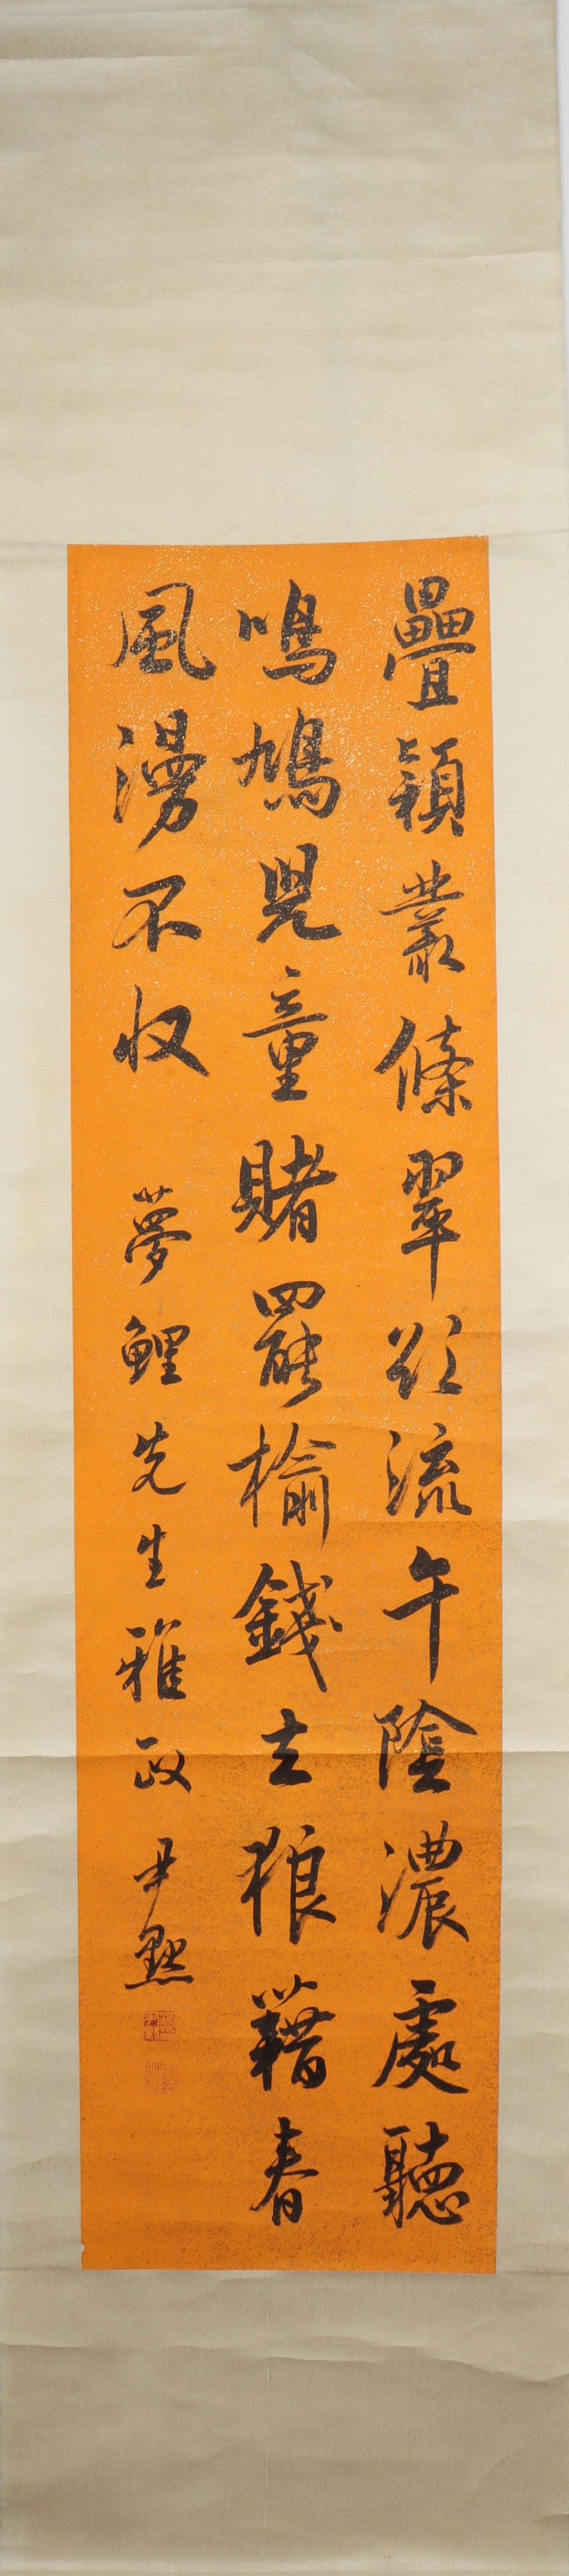 疊穎叢條翠欲流午陰濃處聽
鳴鳩兒童賭罷榆錢去狼藉春
風漫不收 夢鯉先生雅政 尹默